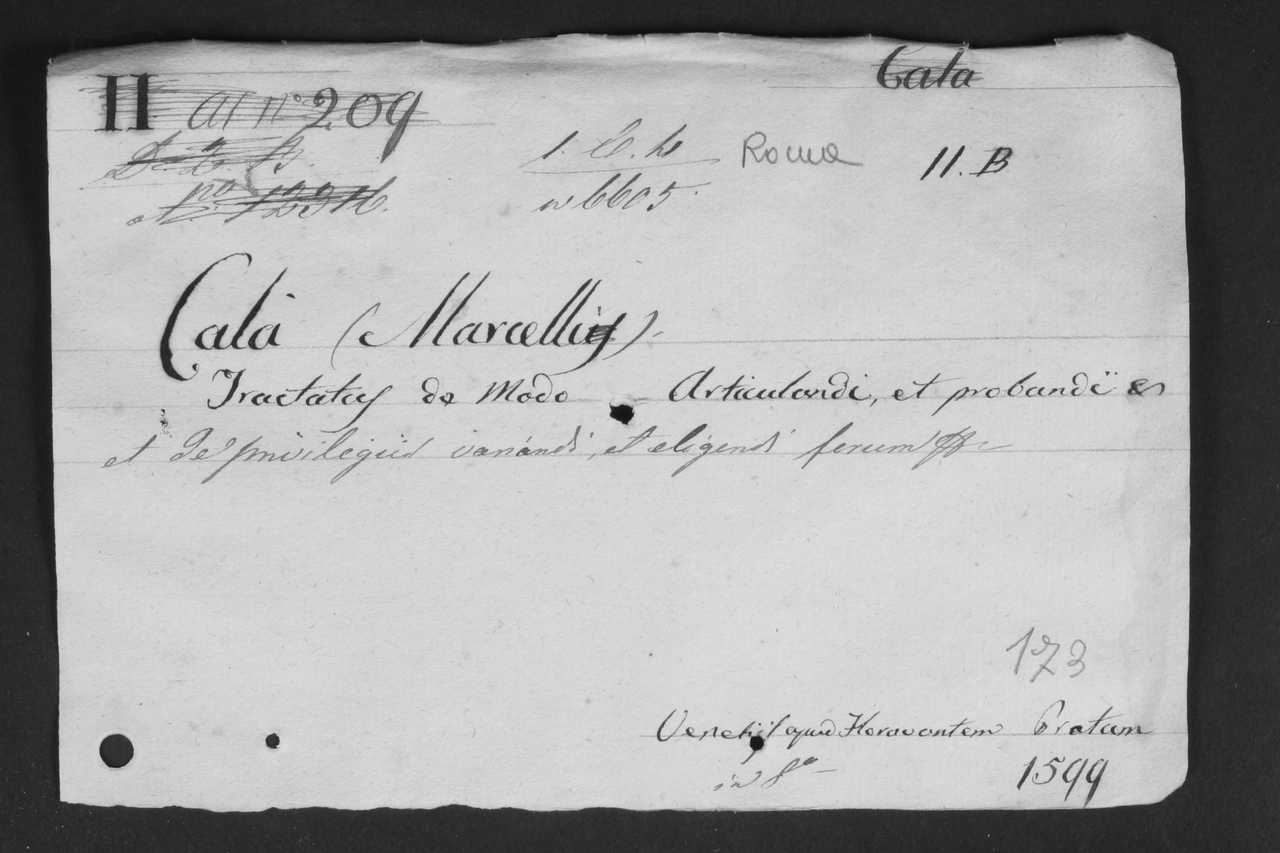 Cala
H AI n° 209
1. C. h Roma 11. B
n 6605.
Calà (Marcelli).
Tractatus de Modo Articulandi, et probandi
et de privilegiis variandi, et eligendi forum
173
Venetijs apud Floravantem Pratum
in 8° 1599